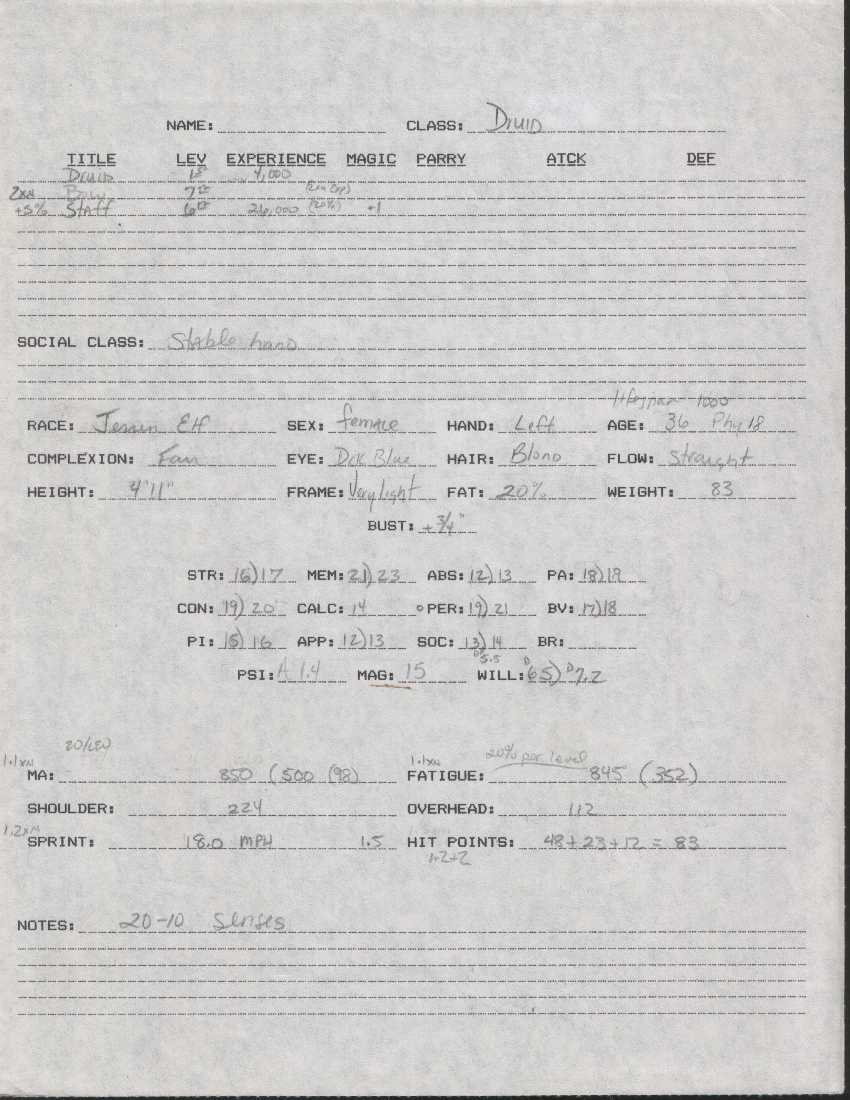 NAME: CLASS: Druid
TITLE LEV EXPERIENCE MAGIC PARRY ATCK DEF
Druid 1st 4,000
2xN Bow 7th
+5% Staff 6th 26,000 (20%) +1
SOCIAL CLASS: Stable hand
lifespan 1000
RACE: Elf SEX: female HAND: Left AGE: 36 Phy 18
COMPLEXION: Fair EYE: Drk Blue HAIR: Blond FLOW: Straight
HEIGHT: 4'11" FRAME: Very light FAT: 20% WEIGHT: 83
BUST: +3/4"
STR: 16)17 MEM: 21)23 ABS: 12)13 PA: 18)19
CON: 19)20 CALC: 14 PER: 19)21 BV: 17)18
PI: 15)16 APP: 12)13 SOC: 13)14 BR:
D5.5
PSI: A 1.4 MAG: 15 WILL: D65) D7.2
20/LEV
1.1xN 1.1xN 20% per level
MA: 850 (500 (98) FATIGUE: 845 (352)
SHOULDER: 224 OVERHEAD: 112
1.2xN
SPRINT: 18.0 MPH 1.5 HIT POINTS: 48+23+12 = 83
1+2+2
NOTES: 20-10 Senses